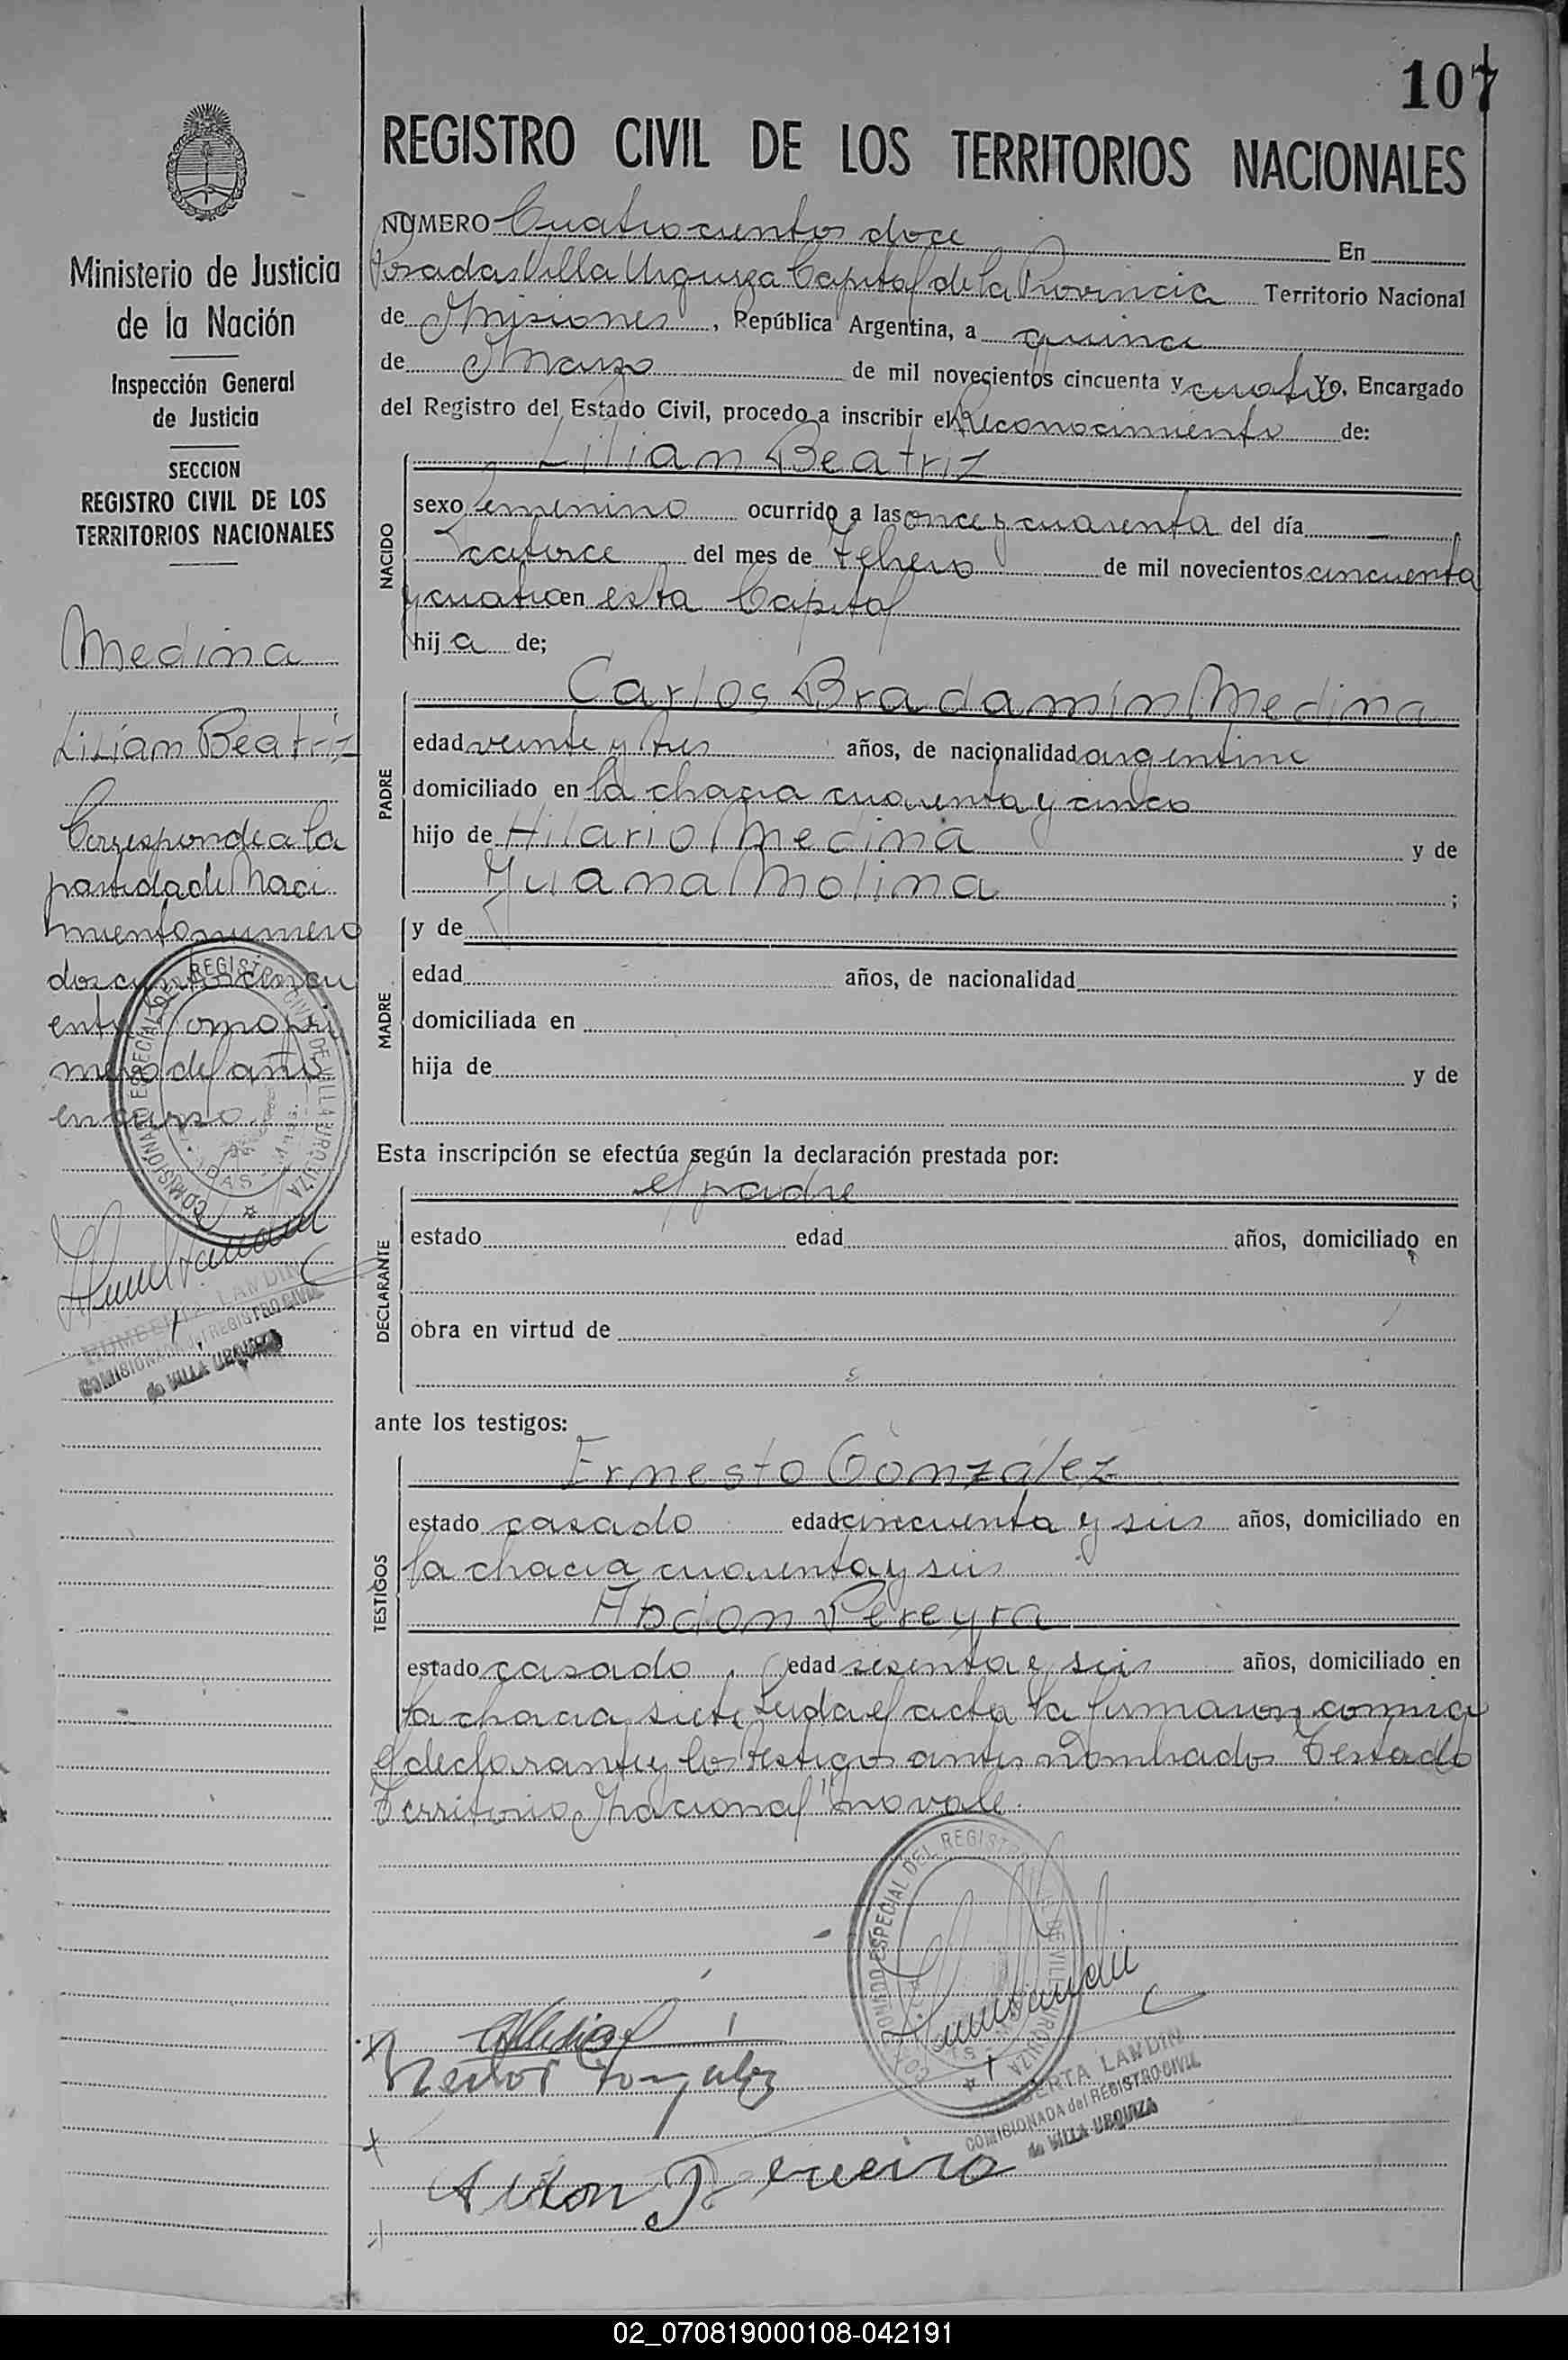 107
REGISTRO CIVIL DE LOS TERRITORIOS NACIONALES
NUMERO Cuatrocientos doce En
Posadas Villa Urquiza Capital de la Provincia Territorio Nacional
de Misiones, República Argentina, a quince
de Marzo de mil novecientos cincuenta y cuatro Yo, Encargado
del Registro del Estado Civil, procedo a inscribir el Reconocimiento de:
NACIDO
Lilian Beatriz
sexo femenino ocurrido a las once y cuarenta del día
catorce del mes de Febrero de mil novecientos cincuenta
y cuatro en esta Capital
hija de;
PADRE
Carlos Bradamin Medina
edad veinte y tres años, de nacionalidad argentino
domiciliado en la chacra cuarenta y cinco
hijo de Hilario Medina y de
Juana Molina ;
MADRE
y de
edad años, de nacionalidad
domiciliada en
hija de y de
Esta inscripción se efectúa según la declaración prestada por:
DECLARANTE
el padre
estado edad años, domiciliado en
obra en virtud de
ante los testigos:
TESTIGOS
Ernesto González
estado casado edad cincuenta y seis años, domiciliado en
la chacra cuarenta y seis
Abdon Pereyra
estado casado edad sesenta y seis años, domiciliado en
la chacra siete, Leida el acta la firmaron conmigo
el declarante y los testigos antes nombrados Testado
Territorio Nacional no vale.
COMISIONADO ESPECIAL DEL REGISTRO CIVIL DE VILLA URQUIZA
HUMBERTA LANDIN
COMISIONADA del REGISTRO CIVIL
de VILLA URQUIZA
Abdon Pereira
Ministerio de Justicia
de la Nación
Inspección General
de Justicia
SECCION
REGISTRO CIVIL DE LOS
TERRITORIOS NACIONALES
Medina
Lilian Beatriz
Corresponde a la
partida de Naci
miento numero
doscientos cincu
enta Tomo pri
mero del año
en curso.
COMISIONADO ESPECIAL DEL REGISTRO CIVIL DE VILLA URQUIZA
HUMBERTA LANDIN
COMISIONADA del REGISTRO CIVIL
de VILLA URQUIZA
02_070819000108-042191